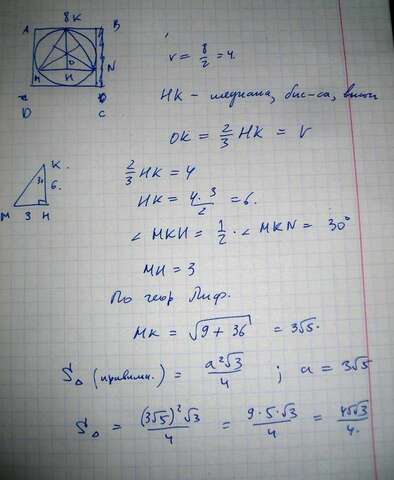 8 K
A B
O
M H N
D C
r = 8/2 = 4.
HK – медиана, бис-са, высот
OK = 2/3 HK = r
K.
30 6.
M 3 H
2/3 HK = 4
HK = 4·3/2 = 6.
∠ MKH = 1/2 · ∠ MKN = 30°
MH = 3
По теор Пиф.
MK = √9 + 36 = 3√5.
S△ (правильн.) = a²√3/4 ; a = 3√5
S△ = (3√5)²√3/4 = 9·5·√3/4 = 45√3/4.